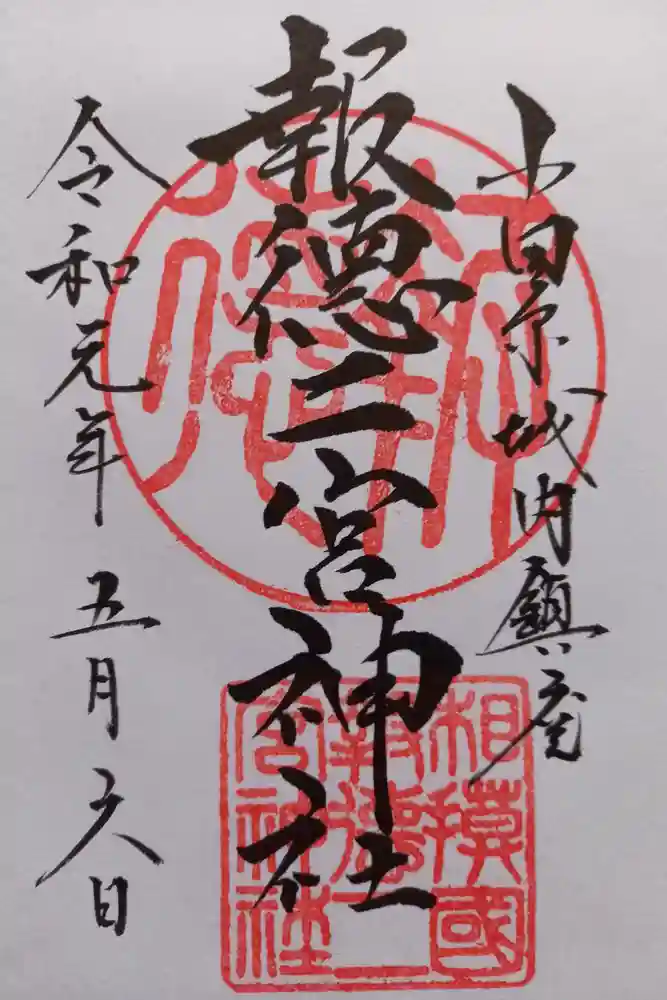 小田原城内鎮座
報徳二宮神社
令和元年 五月六日
相摸國
報徳二
宮神社